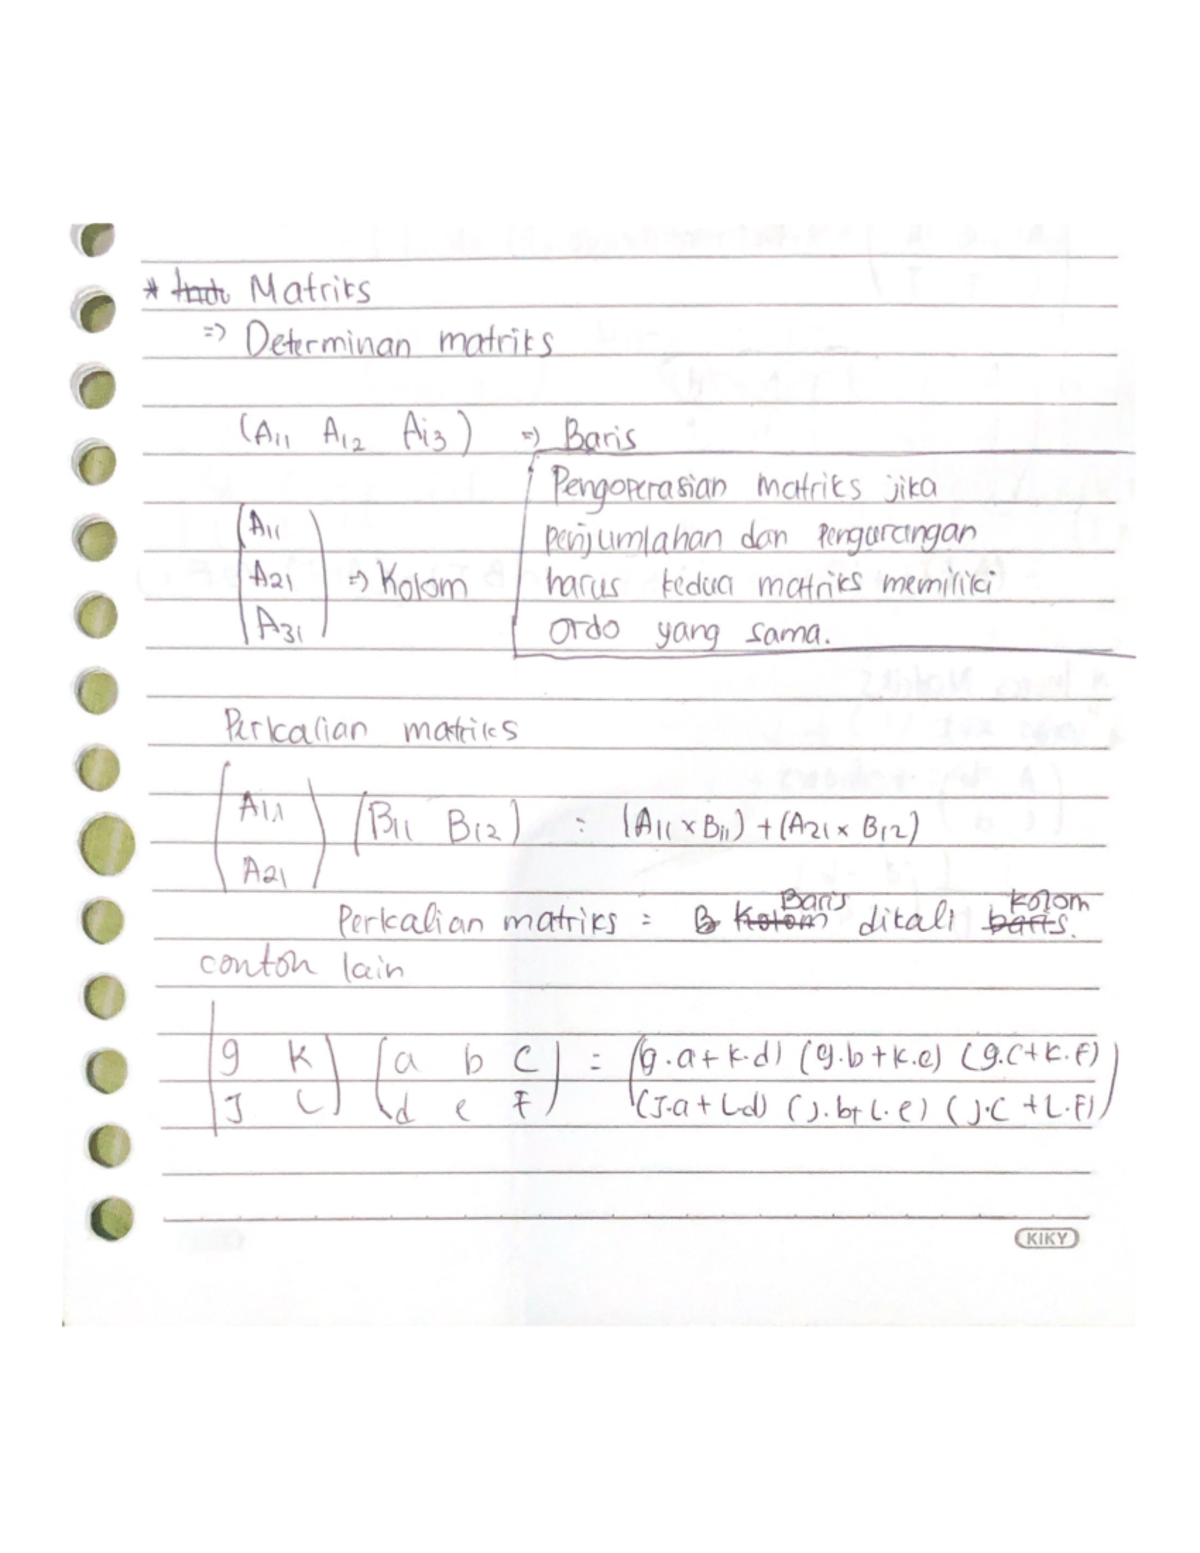 * Matriks
=> Determinan matriks
(A11 A12 Ai3) => Baris
Pengoperasian matriks jika
penjumlahan dan Pengurangan
harus kedua matriks memiliki
Ordo yang sama.
(A11
A21
A31) => Kolom
Perkalian matriks
(A11
A21) (B11 B12) = (A11 x B11) + (A21 x B12)
Perkalian matriks = B Kolom Baris dikali baris kolom.
contoh lain
(g k) (a b c) = (g.a + k.d) (g.b + k.e) (g.c + k.F)
(J L) (d e F) (J.a + L.d) (J.b + L.e) (J.c + L.F)
KIKY